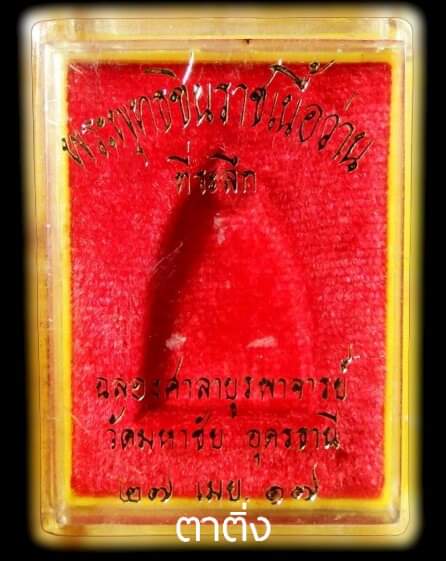 พระพุทธชินราชเนื้อว่าน
ที่ระลึก
ฉลองศาลาบูรพาจารย์
วัดมหาชัย อุดรธานี
๒๗ เมย. ๑๗
ตาติ่ง